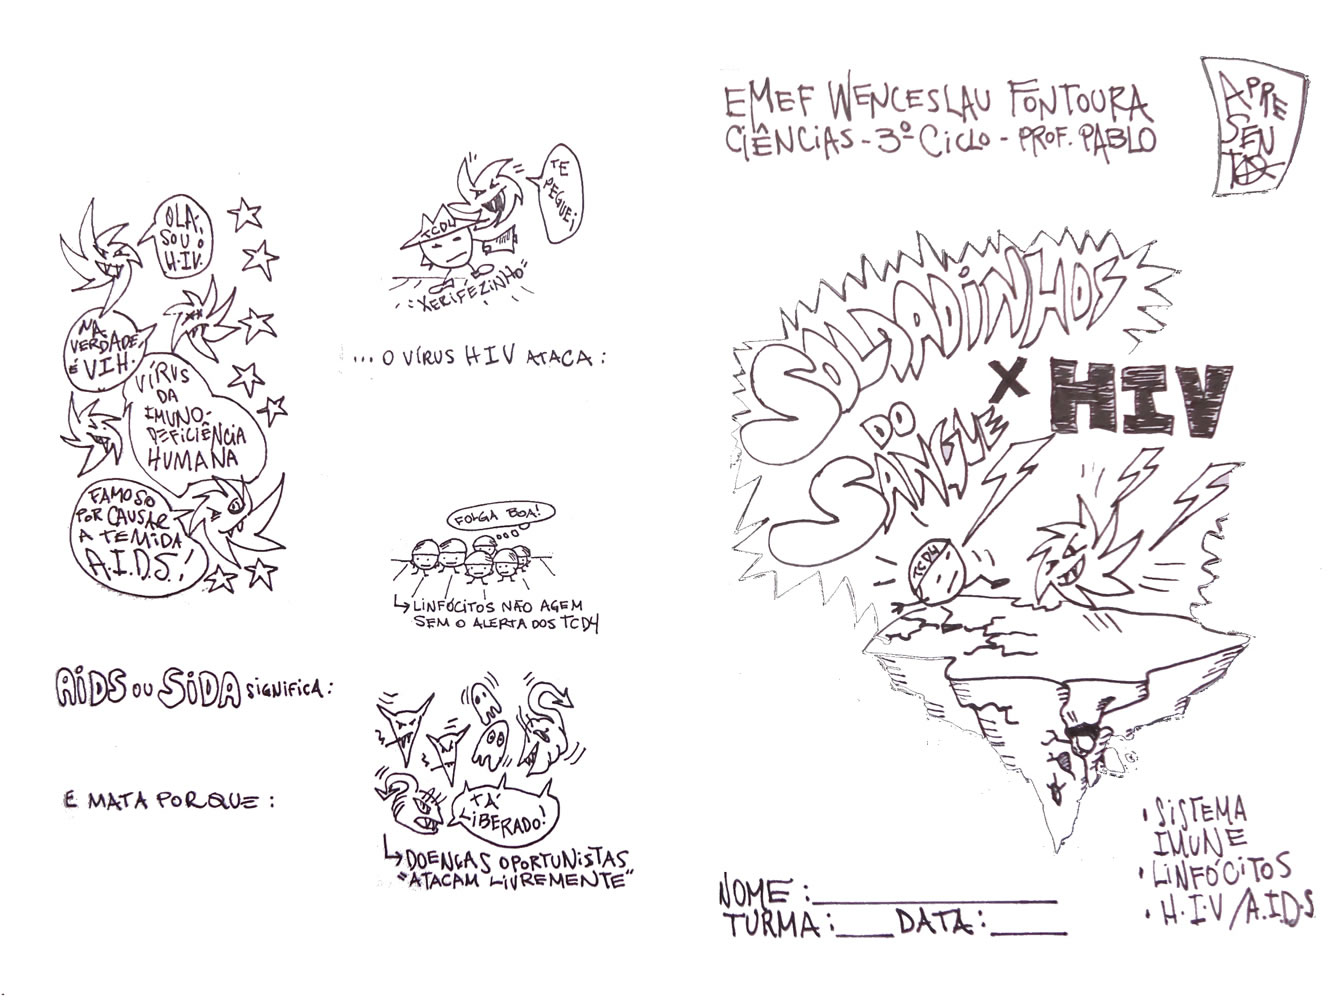 OLÁ,
SOU O
H.I.V.
NA
VERDADE,
É VIH.
VÍRUS
DA
IMUNO-
DEFICIÊNCIA
HUMANA
FAMOSO
POR CAUSAR
A TEMIDA
A.I.D.S!
AIDS OU SIDA SIGNIFICA:
E MATA PORQUE:
TE
PEGUEI
TCD4
"XERIFEZINHO"
... O VÍRUS HIV ATACA:
FOLGA BOA!
LINFÓCITOS NÃO AGEM
SEM O ALERTA DOS TCD4
TÁ
LIBERADO!
DOENÇAS OPORTUNISTAS
"ATACAM LIVREMENTE"
EMEF WENCESLAU FONTOURA
CIÊNCIAS - 3º CICLO - PROF. PABLO
APRE
SEN
TA
SOLDADINHOS
DO
SANGUE
X HIV
TCD4
• SISTEMA
IMUNE
• LINFÓCITOS
• H.I.V/A.I.D.S
NOME:____________________
TURMA:____DATA:_____